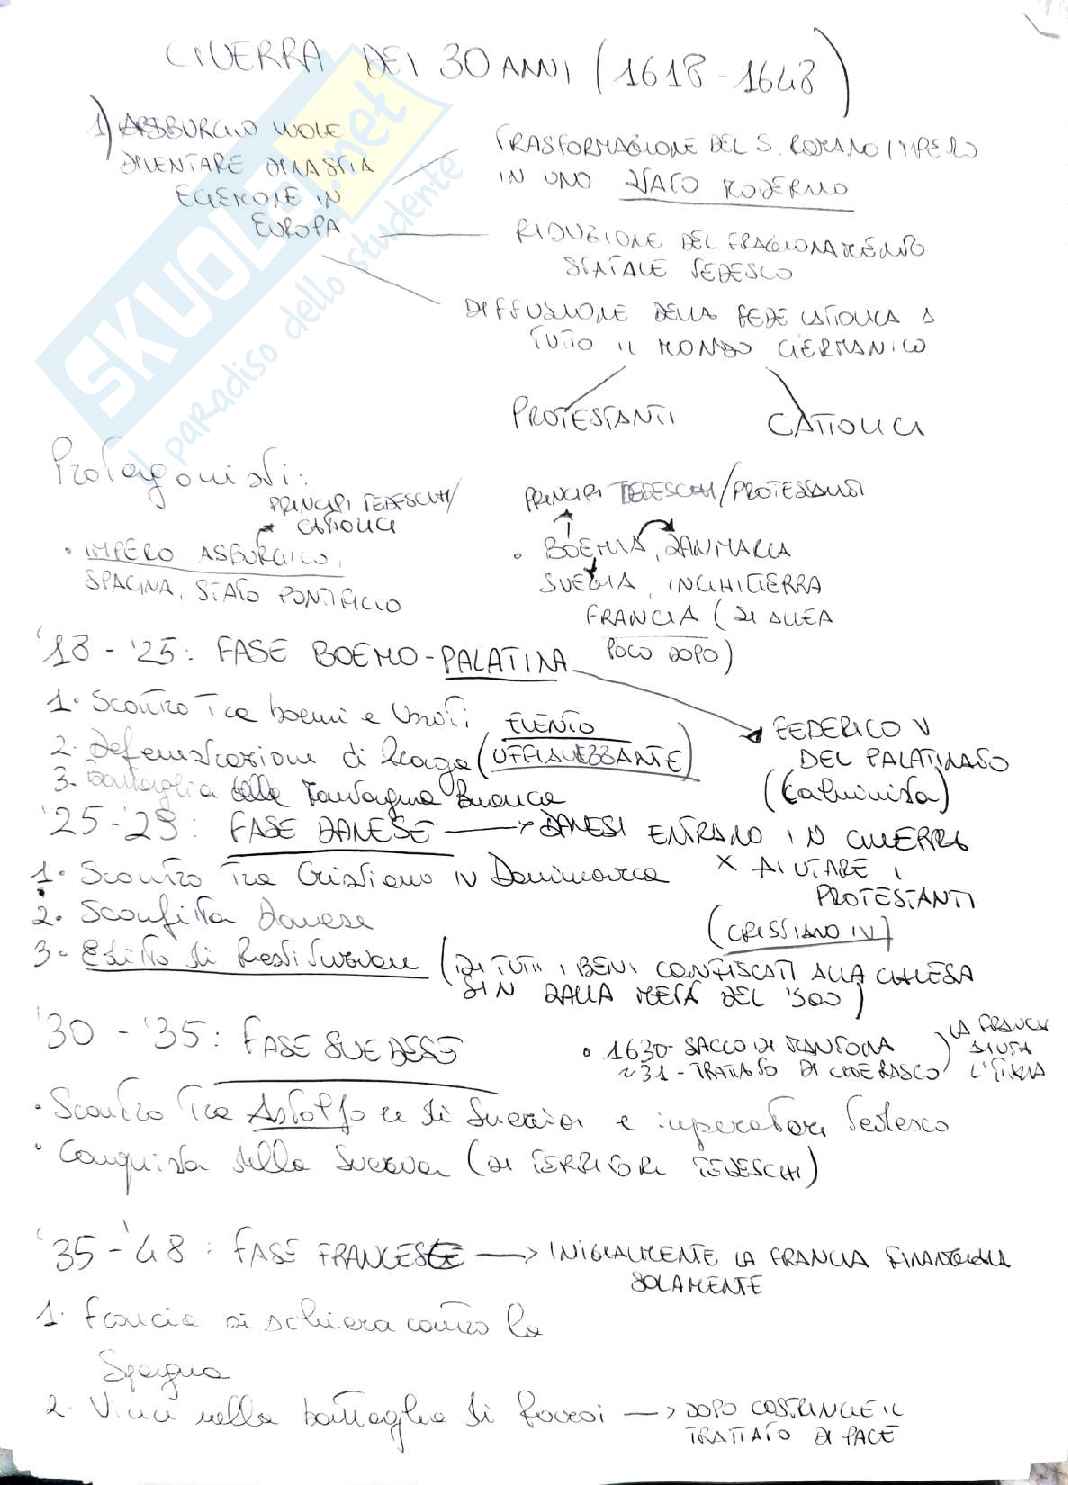 GUERRA DEI 30 ANNI (1618-1648)
1) ASBURGO VUOLE
DIVENTARE DINASTIA
EGEMONE IN
EUROPA
TRASFORMAZIONE DEL S. ROMANO IMPERO
IN UNO STATO MODERNO
RIDUZIONE DEL FRAZIONAMENTO
STATALE TEDESCO
DIFFUSIONE DELLA FEDE CATTOLICA A
TUTTO IL MONDO GERMANICO
PROTESTANTI
CATTOLICI
SKUOLA.net
il paradiso dello studente
Protagonisti:
PRINCIPI TEDESCHI/
CATTOLICI
• IMPERO ASBURGICO,
SPAGNA, STATO PONTIFICIO
PRINCIPI TEDESCHI/PROTESTANTI
• BOEMIA, DANIMARCA
SVEZIA, INGHILTERRA
FRANCIA (SI ALLEA
POCO DOPO)
'18 - '25: FASE BOEMO-PALATINA
1. Scontro tra boemi e
2. Defenestrazione di Praga (EVENTO
3. Battaglia della Montagna Bianca
FEDERICO V
DEL PALATINATO
(calvinista)
'25-'29: FASE DANESE → DANESI ENTRANO IN GUERRA
X AIUTARE I
PROTESTANTI
(CRISTIANO IV)
1. Scontro tra Cristiano IV Danimarca
2. Sconfitta Danese
3. Editto di Restituzione (DI TUTTI I BENI CONFISCATI ALLA CHIESA
SIN DALLA METÀ DEL '500)
'30 - '35: FASE SVEDESE
• 1630- SACCO DI MANTOVA
31 - TRATTATO DI CHERASCO
LA FRANCIA
AIUTA
• Scontro tra Astolfo re di Svezia e imperatore tedesco
• Conquista della Svezia (DI TERRITORI TEDESCHI)
'35-'48: FASE FRANCESE → INIZIALMENTE LA FRANCIA FINANZIAVA
SOLAMENTE
1. Francia si schiera contro la
Spagna
2. Vince nella battaglia di Rocroi → DOPO COSTRINGE IL
TRATTATO DI PACE